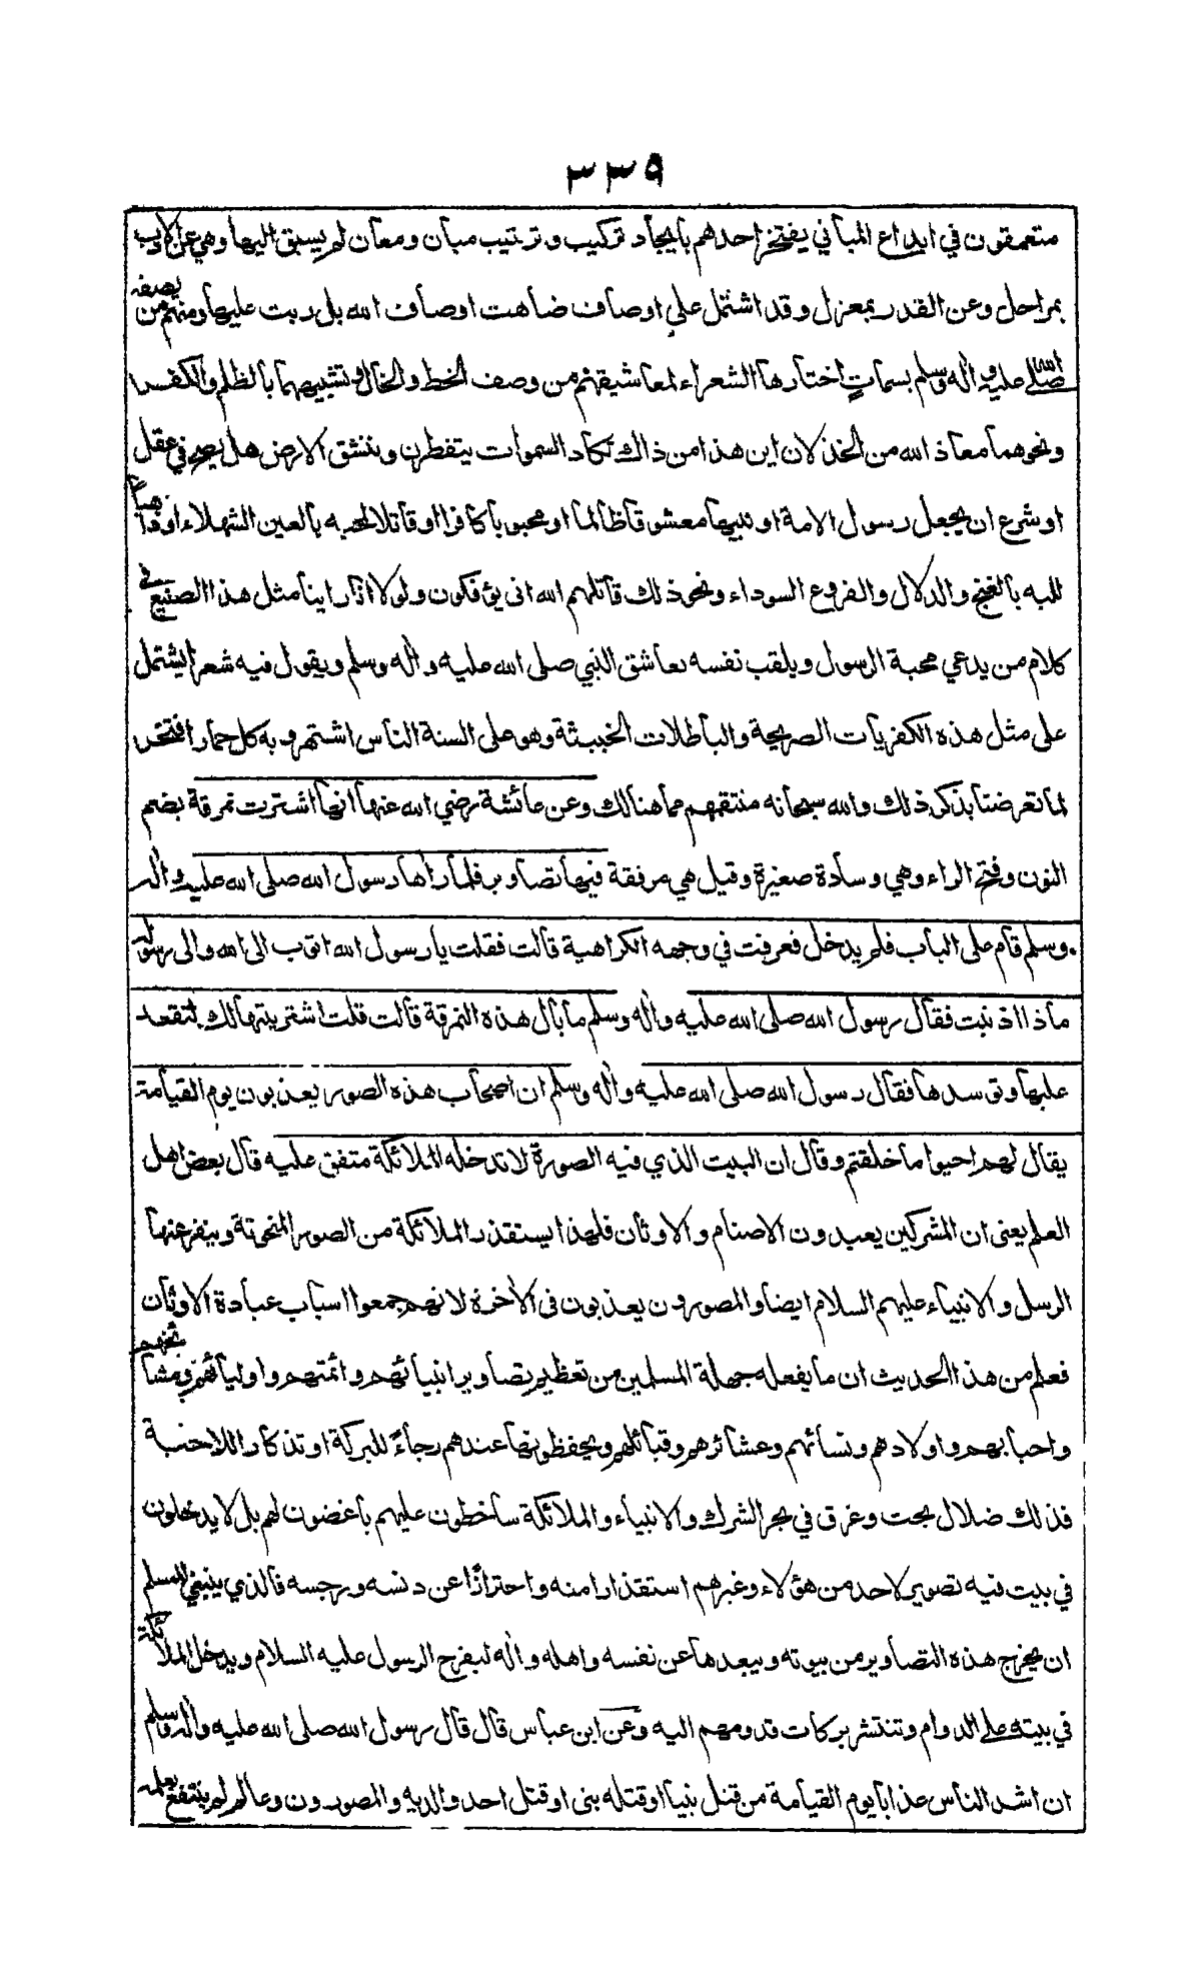 ٣٣٩
متعمقون في ابداع المباني يفتخر احدهم بايجاد تركيب وترتيب مبان ومعان لم يسبق اليها وهي عن الادب
بمراحل وعن القدر بمعزل وقد اشتمل على اوصاف ضاهت اوصاف الله بل ربت عليها ومنهم من يصفه
صلى الله عليه واله وسلم بسمات اختارها الشعراء لمعاشيقهم من وصف الخط والخال وتشبيههما بالظلم والكفر
ونحوهما معاذ الله من الخذلان اين هذا من ذاك تكاد السموات يتفطرن وتنشق الارض هل يصح في عقل
او شرع ان يجعل رسول الامة او نبيها معشوقا ظالما او محبوبا كافرا او قاتلا لمحبه بالعين الشهلاء او ذاهبا
للبه بالغنج والدلال والفروع السوداء ونحو ذلك قاتلهم الله انى يؤفكون ولولا انا راينا مثل هذا الصنيع في
كلام من يدعي محبة الرسول ويلقب نفسه بعاشق النبي صلى الله عليه واله وسلم ويقول فيه شعرا يشتمل
على مثل هذه الكفريات الصريحة والباطلات الخبيثة وهو على السنة الناس اشتهر وبه كل حمار افتخر
لما تعرضنا بذكر ذلك والله سبحانه منتقمهم مما هنالك وعن عائشة رضي الله عنها انها اشترت نمرقة بضم
النون وفتح الراء وهي وسادة صغيرة وقيل هي مرفقة فيها تصاوير فلما راها رسول الله صلى الله عليه واله
وسلم قام على الباب فلم يدخل فعرفت في وجهه الكراهية قالت فقلت يا رسول الله اتوب الى الله والى رسوله
ماذا اذنبت فقال رسول الله صلى الله عليه واله وسلم ما بال هذه النمرقة قالت قلت اشتريتها لك لتقعد
عليها وتوسدها فقال رسول الله صلى الله عليه واله وسلم ان اصحاب هذه الصور يعذبون يوم القيامة
يقال لهم احيوا ما خلقتم وقال ان البيت الذي فيه الصورة لا تدخله الملائكة متفق عليه قال بعض اهل
العلم يعنى ان المشركين يعبدون الاصنام والاوثان فلهذا يستقذر الملائكة من الصور المنحوتة وينفر عنها
الرسل والانبياء عليهم السلام ايضا والمصورون يعذبون في الاخرة لانهم جمعوا اسباب عبادة الاوثان
فعلم من هذا الحديث ان ما يفعله جهلة المسلمين من تعظيم تصاوير انبيائهم وائمتهم واوليائهم ومشائخهم
واحبابهم واولادهم ونسائهم وعشائرهم وقبائلهم ويحفظونها عندهم رجاءً للبركة او تذكارا للاحبة
فذلك ضلال بحت وغرق في بحر الشرك والانبياء والملائكة ساخطون عليهم باغضون لهم بل لا يدخلون
في بيت فيه تصوير لاحد من هؤلاء وغيرهم استقذارا منه واحترازا عن دنسه ورجسه فالذي ينبغي للمسلم
ان يخرج هذه التصاوير من بيوته ويبعدها عن نفسه واهله واله ليفرح الرسول عليه السلام ويدخل الملائكة
في بيته على الدوام وتنتشر بركات قدومهم اليه وعن ابن عباس قال قال رسول الله صلى الله عليه واله وسلم
ان اشد الناس عذابا يوم القيامة من قتل نبيا او قتله نبى او قتل احد والديه والمصورون وعالم لم ينتفع بعلمه